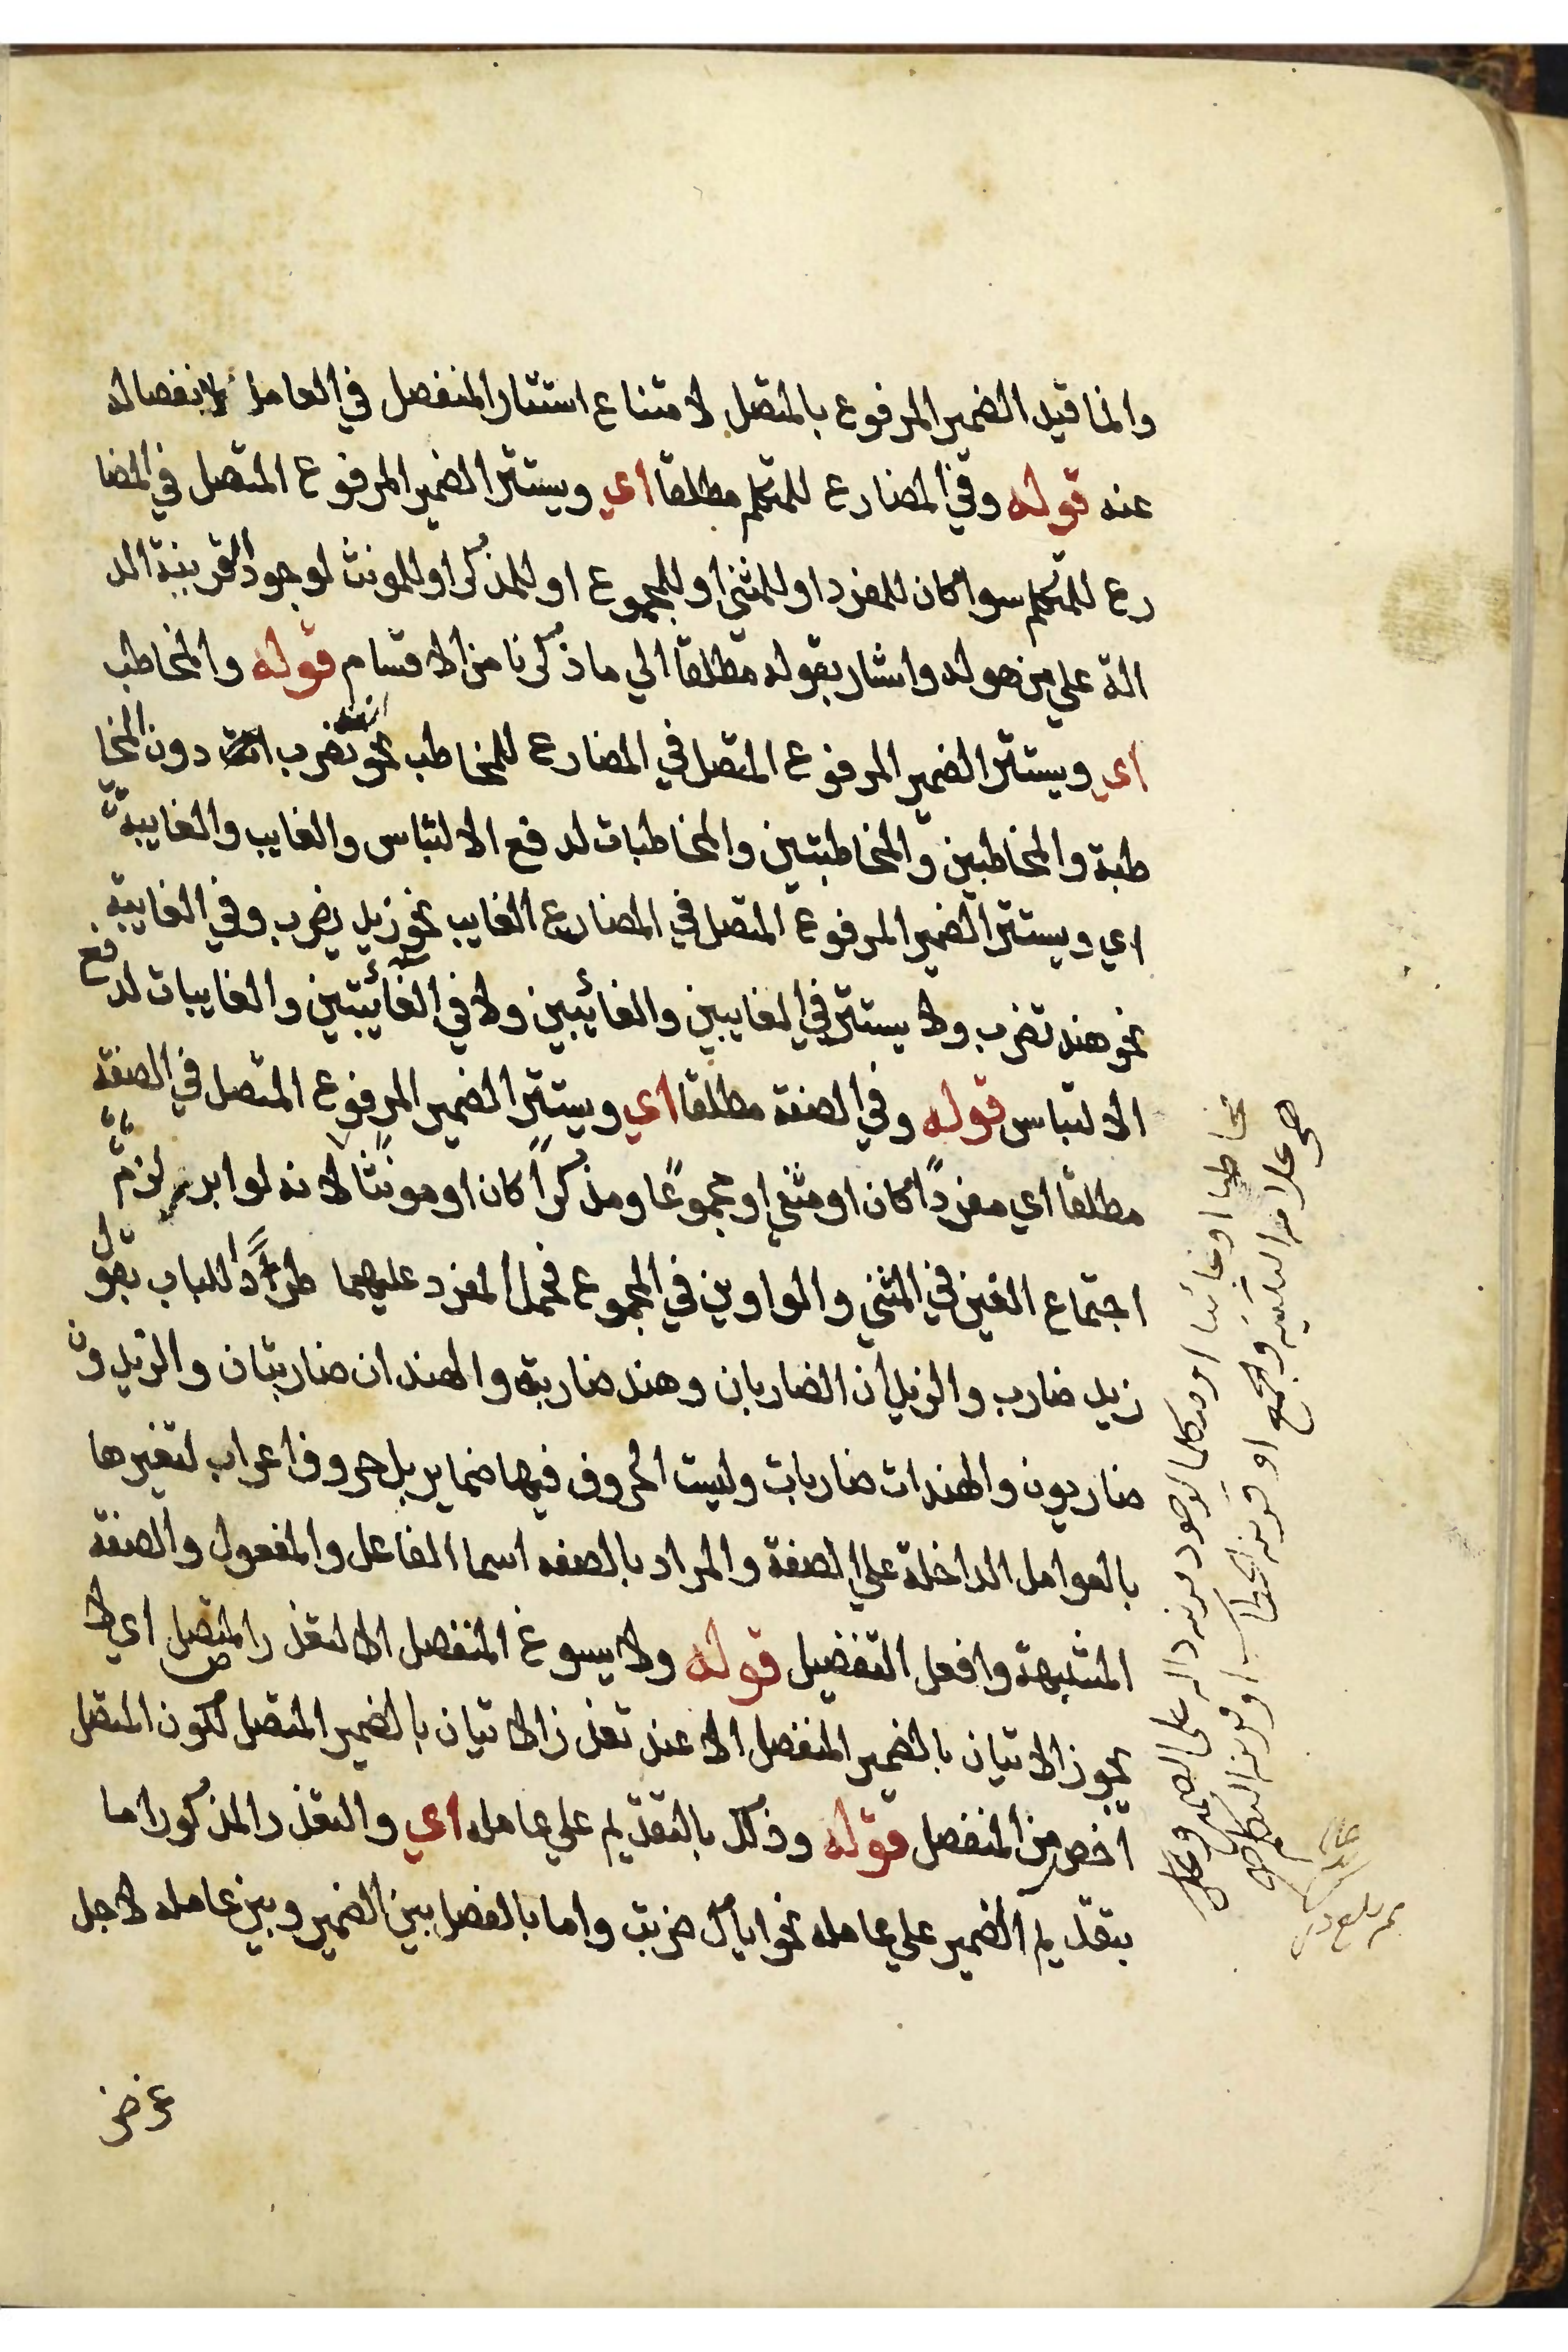 وانما قيد الضمير المرفوع بالمتصل لامتناع استتار المنفصل في العامل لانفصاله
عنه قوله وفي المضارع للمتكلم مطلقا اي ويستتر الضمير المرفوع المتصل في المضا
رع للمتكلم سوا كان للمفرد او للمثنى او للمجموع او للمذكر او للمونث لوجود القرينة الد
الة علي من هو له واشار بقوله مطلقا الي ما ذكرنا من الاقسام قوله والمخاطب
اي ويستتر الضمير المرفوع المتصل في المضارع للمخاطب نحو انت تضرب دون المخا
طبة والمخاطبين والمخاطبتين والمخاطبات لدفع الالتباس والغايب والغايبة
اي ويستتر الضمير المرفوع المتصل في المضارع الغايب نحو زيد يضرب وفي الغايبة
نحو هند تضرب ولا يستتر في الغايبين والغائبين ولا في الغائبتين والغايبات لدفع
الالتباس قوله وفي الصفة مطلقا اي ويستتر الضمير المرفوع المتصل في الصفة
مطلقا اي مفردًا كان او مثنى او مجموعًا ومذكرًا كان او مونثًا لانه لو ابرز لزم
اجتماع الفين في المثني والواوين في المجموع فحمل المفرد عليهما طردًا للباب تقول
زيد ضارب والزيدان الضاربان وهند ضاربة والهندان ضاربتان والزيدون
ضاربون والهندات ضاربات وليست الحروف فيها ضماير بل حروف اعراب لتغيرها
بالعوامل الداخلة علي الصفة والمراد بالصفه اسما الفاعل والمفعول والصفة
المشبهة وافعل التفضيل قوله ولا يسوغ المنفصل الا لتعذر المتصل اي لا
يجوز الاتيان بالضمير المنفصل الا عند تعذر الاتيان بالضمير المتصل لكون المتصل
اخص من المنفصل قوله وذلك بالتقديم علي عامله اي والتعذر المذكور اما
بتقديم الضمير علي عامله نحو اياك ضربت واما بالفصل بين الضمير وبين عامله لاجل
غرض
مخاطبا او غائبا او متكلما لوجود قرينه داله على الضمير وتلك
هي علامه التثنيه والجمع او قرينه الخطاب او قرينه التكلم صح